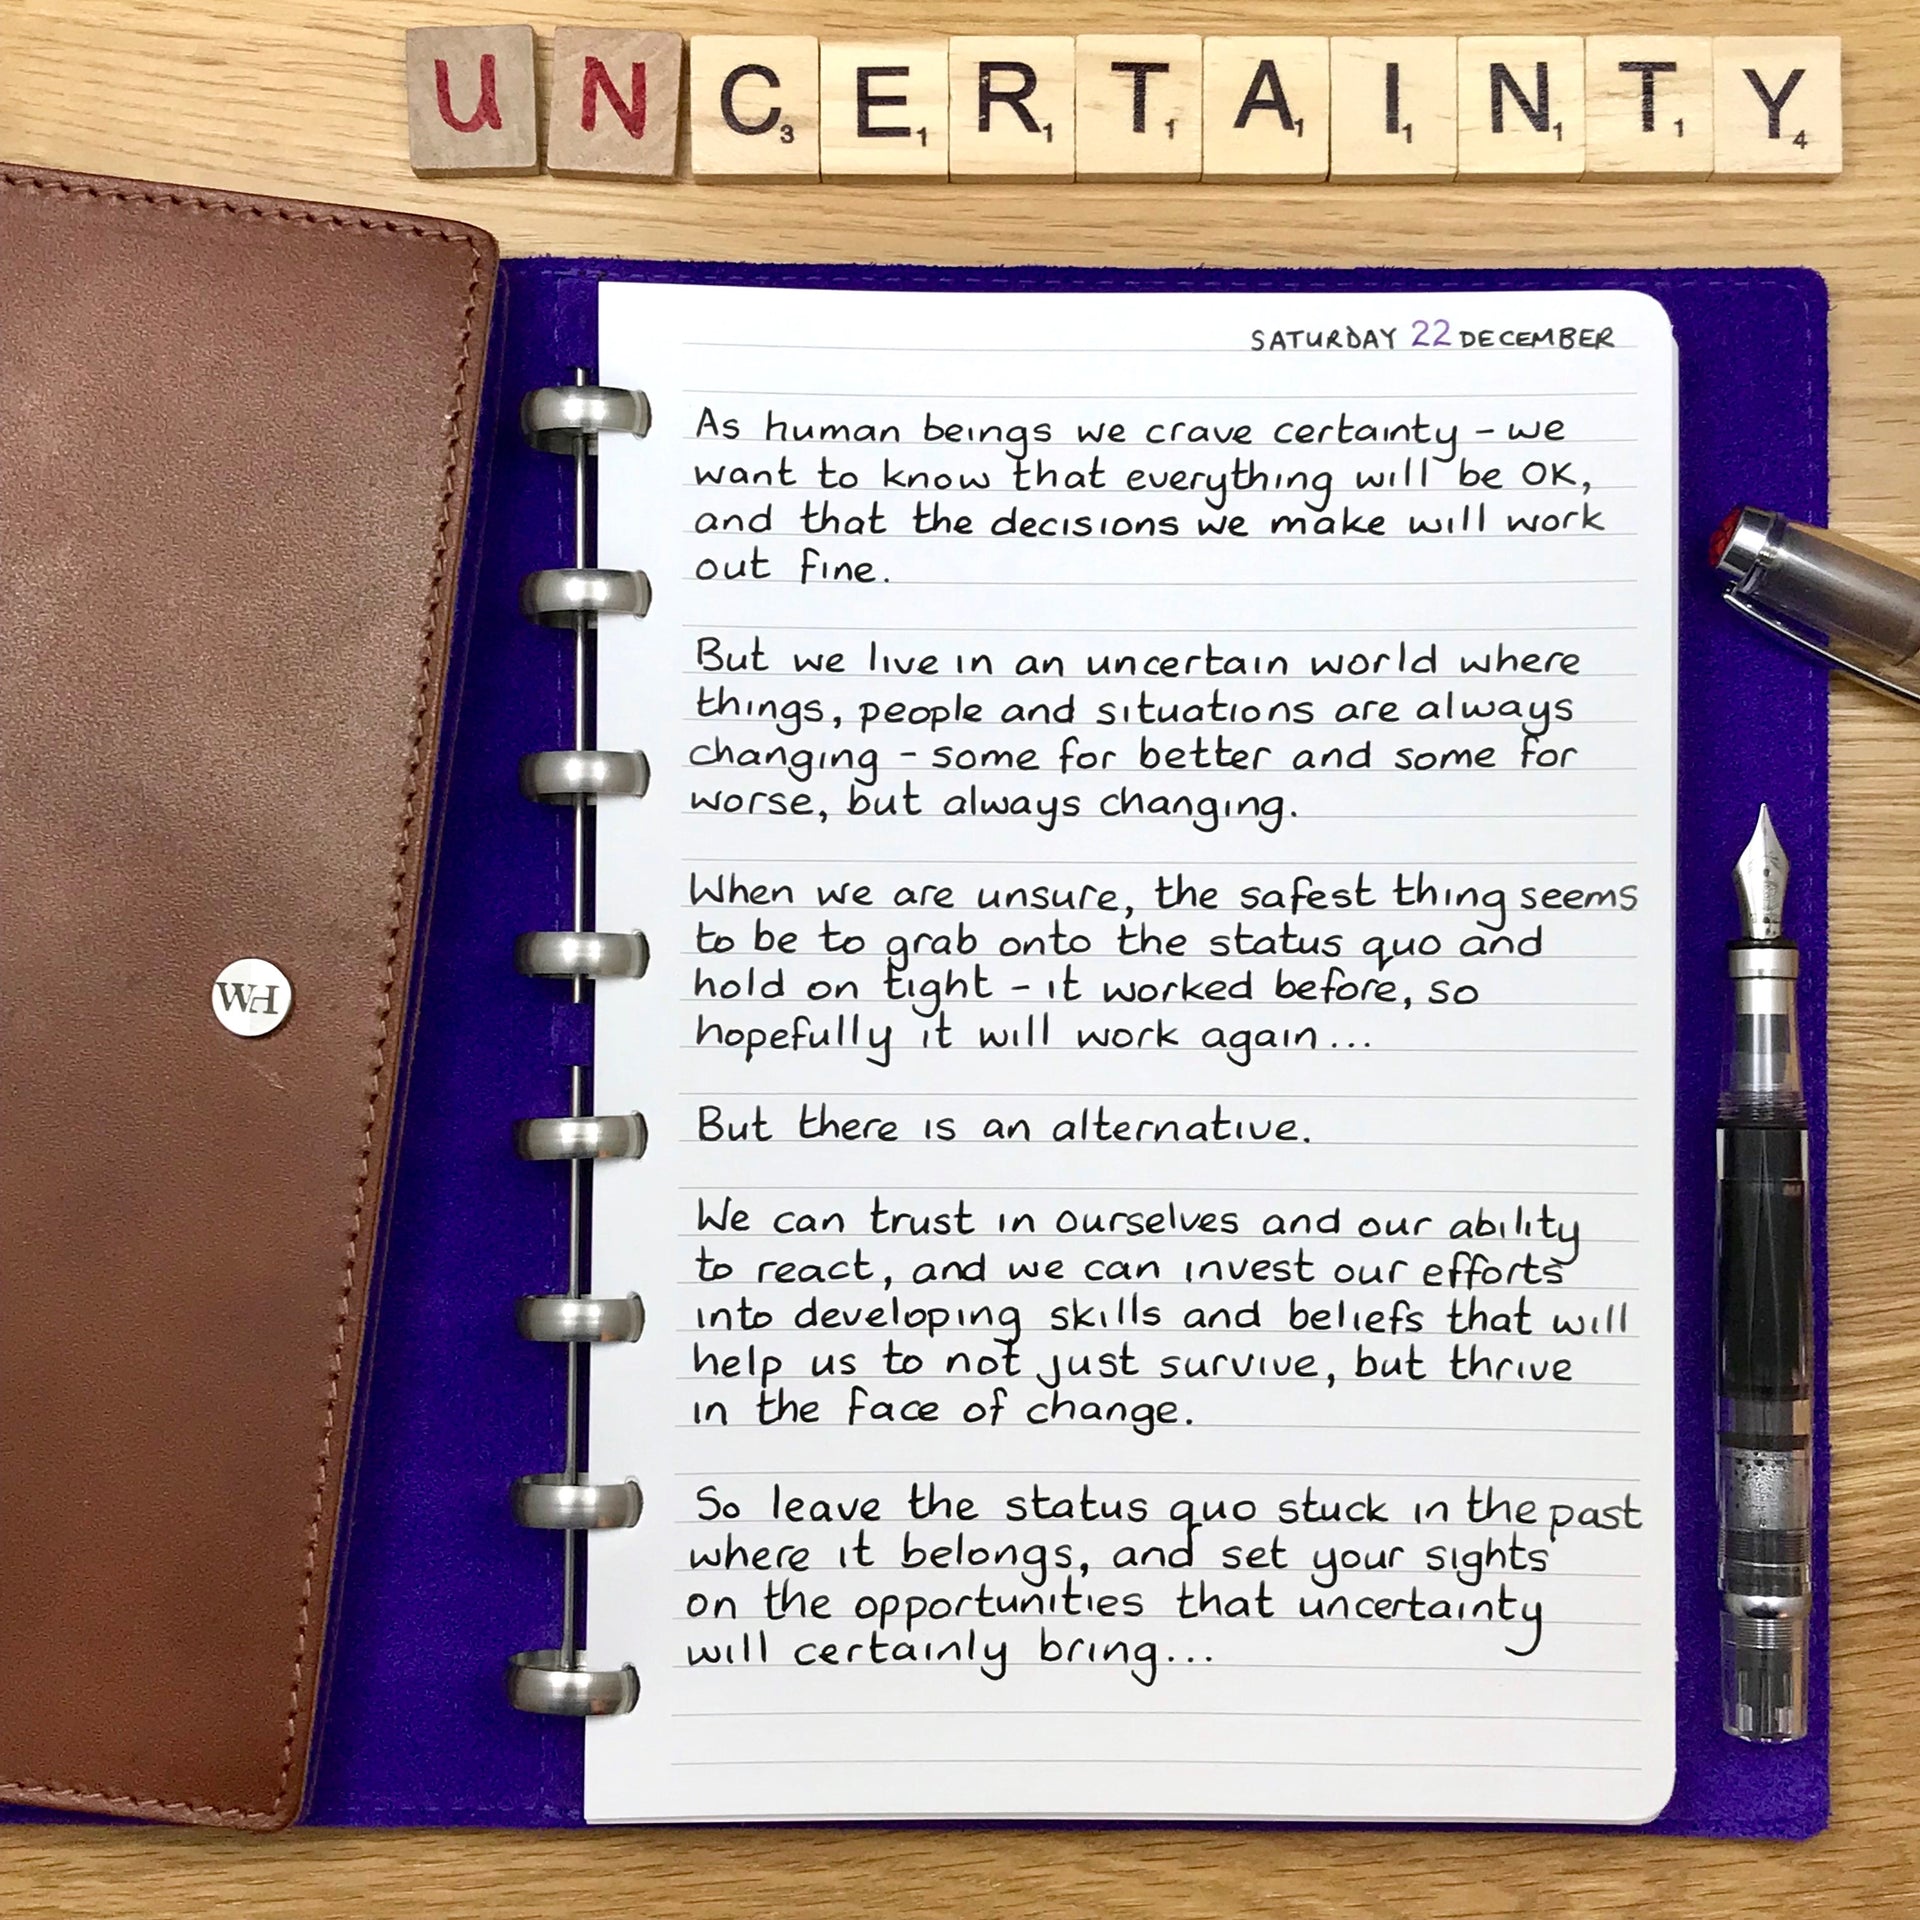 UNCERTAINTY
3 1 1 1 1 1 1 1 4
SATURDAY 22 DECEMBER
As human beings we crave certainty - we
want to know that everything will be OK,
and that the decisions we make will work
out fine.
But we live in an uncertain world where
things, people and situations are always
changing - some for better and some for
worse, but always changing.
When we are unsure, the safest thing seems
to be to grab onto the status quo and
hold on tight - it worked before, so
hopefully it will work again...
But there is an alternative.
We can trust in ourselves and our ability
to react, and we can invest our efforts
into developing skills and beliefs that will
help us to not just survive, but thrive
in the face of change.
So leave the status quo stuck in the past
where it belongs, and set your sights
on the opportunities that uncertainty
will certainly bring...
WH